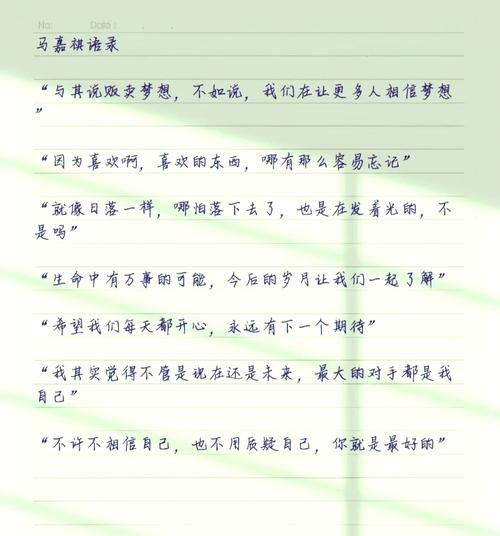 No:   Date :
马嘉祺语录
“与其说贩卖梦想，不如说，我们在让更多人相信梦想
”
“因为喜欢啊，喜欢的东西，哪有那么容易忘记”
“就像日落一样，哪怕落下去了，也是在发着光的，不
是吗”
“生命中有万事的可能，今后的岁月让我们一起了解”
“希望我们每天都开心，永远有下一个期待”
“我其实觉得不管是现在还是未来，最大的对手都是我
自己”
“不许不相信自己，也不用质疑自己，你就是最好的”